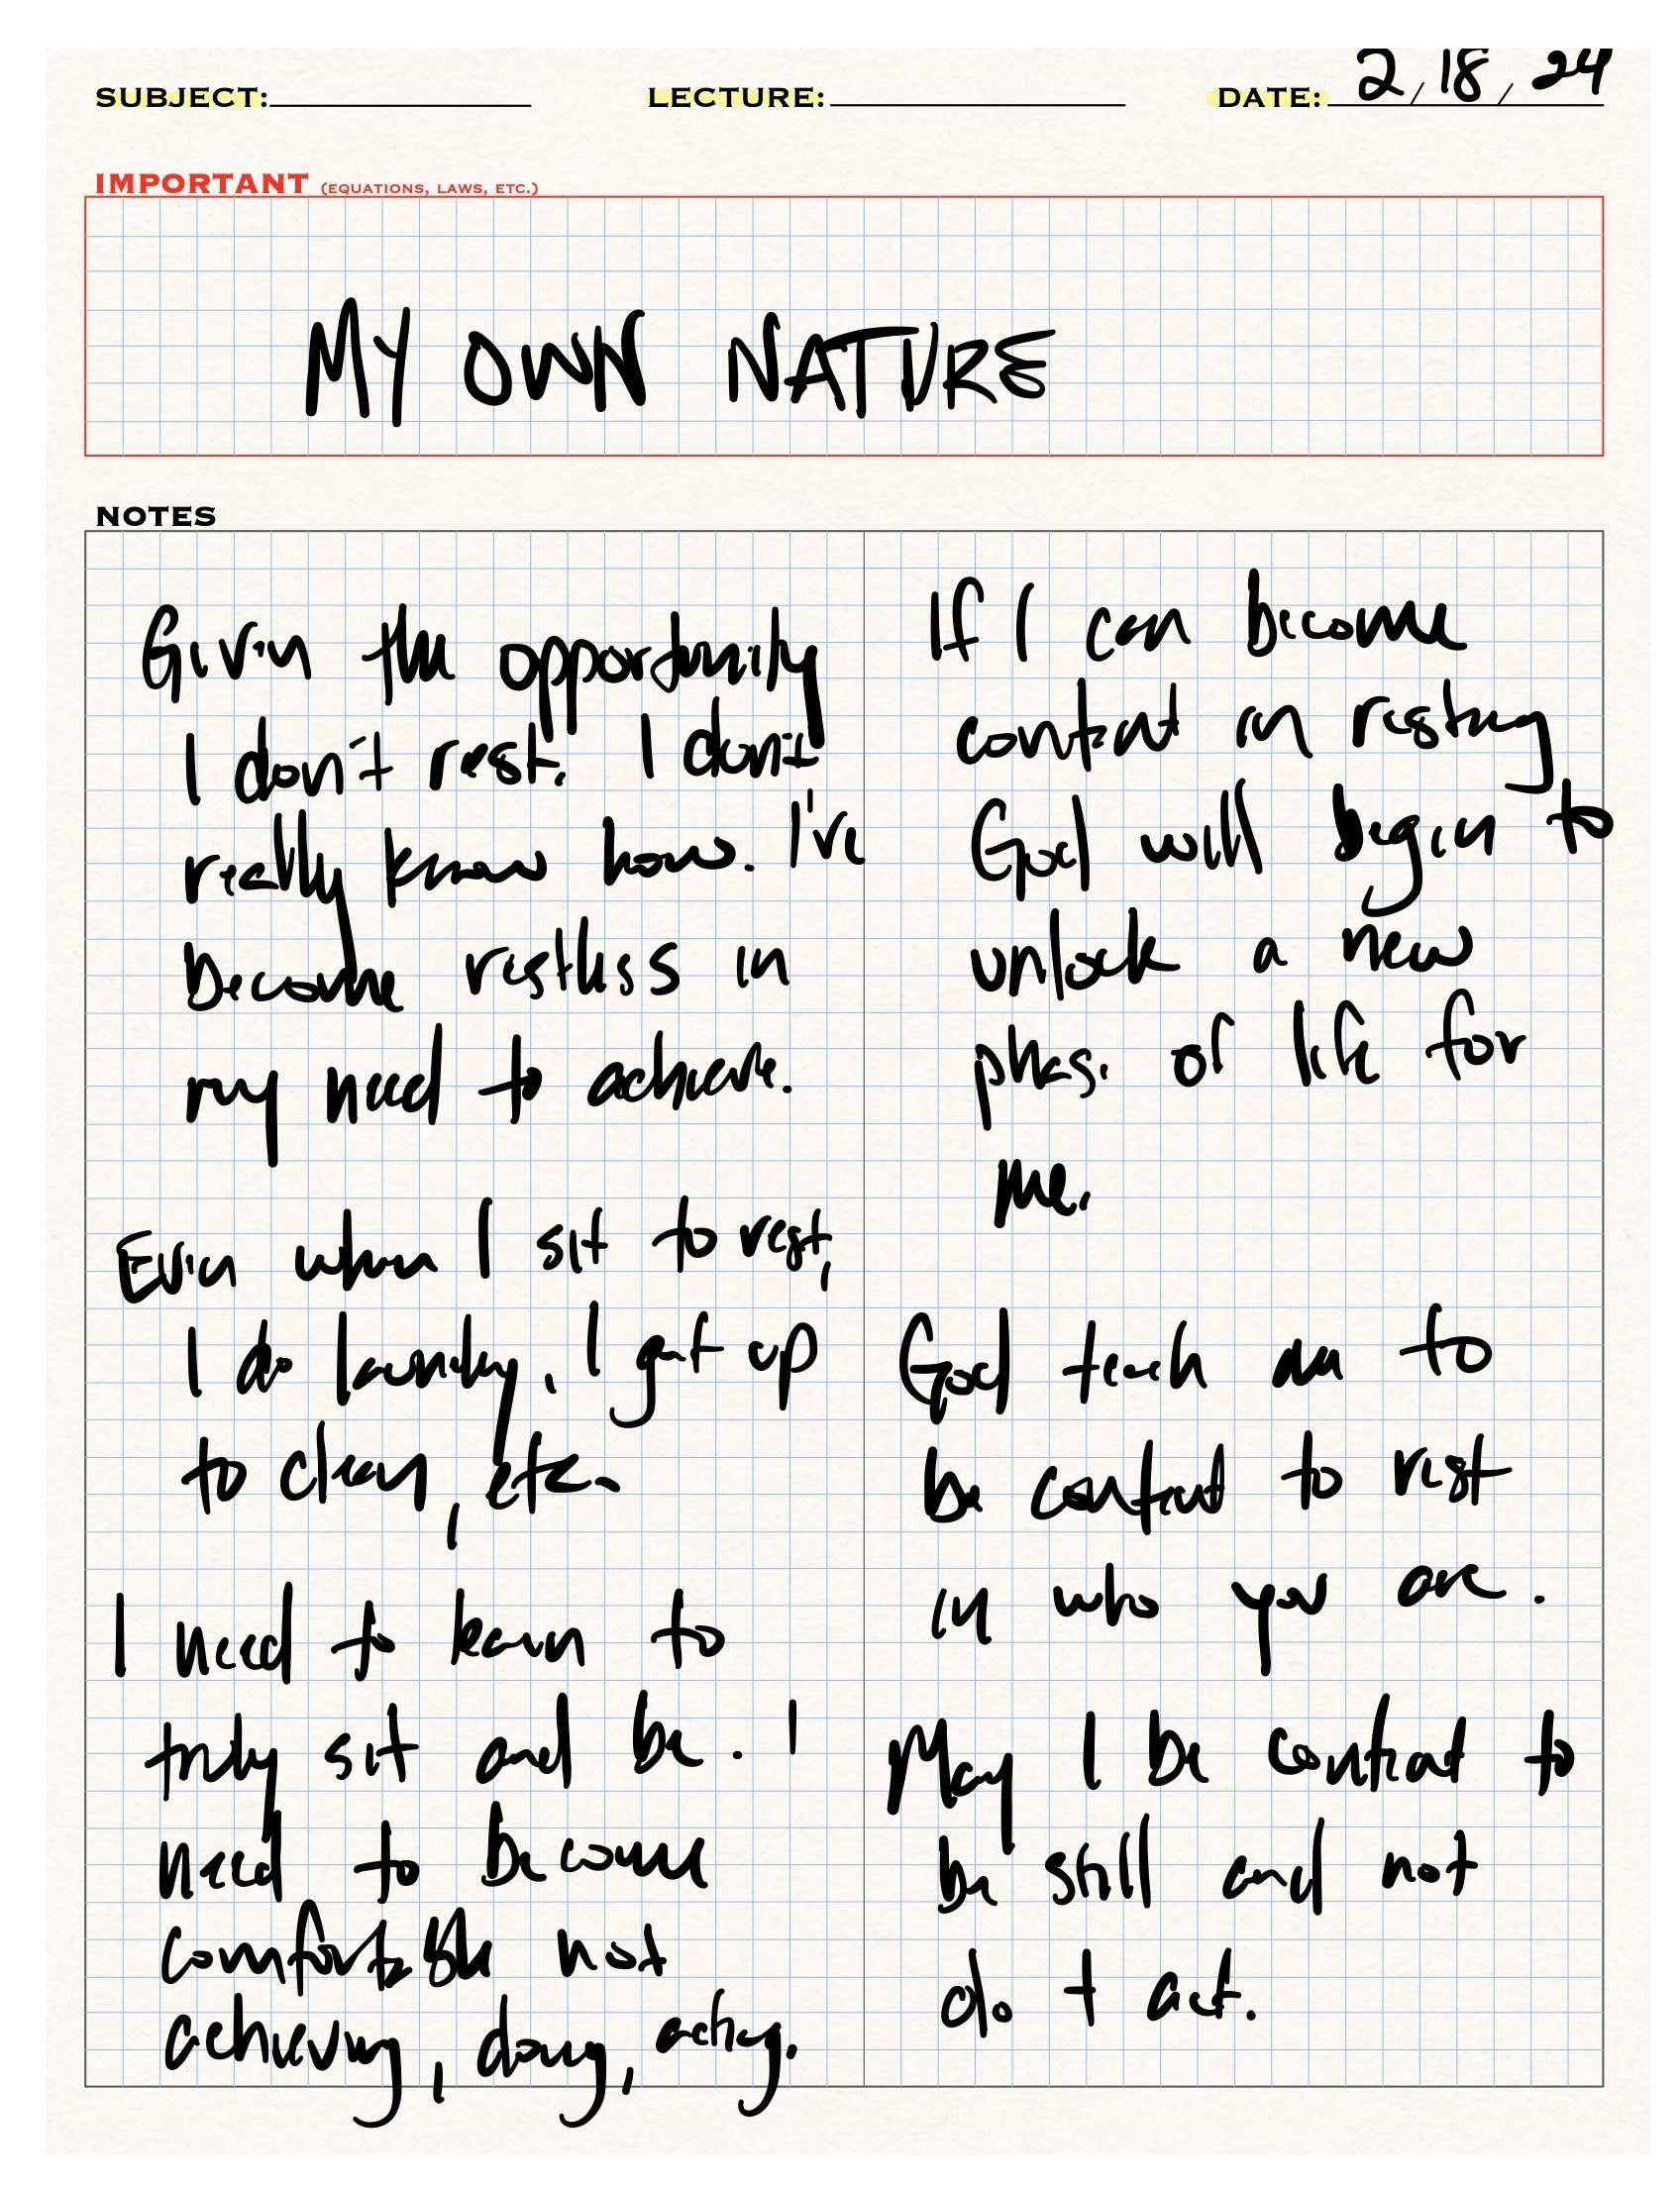 SUBJECT:
LECTURE:
DATE: 2/18/24
IMPORTANT (EQUATIONS, LAWS, ETC.)
MY OWN NATURE
NOTES
Given the opportunity
I don't rest. I don't
really know how. I've
become restless in
my need to achieve.
Even when I sit to rest,
I do laundry, I get up
to clean, etc.
I need to learn to
truly sit and be. I
need to become
comfortable not
achieving, doing, acting.
If I can become
content in resting
God will begin to
unlock a new
phase of life for
me.
God teach me to
be content to rest
in who you are.
May I be content to
be still and not
do + act.